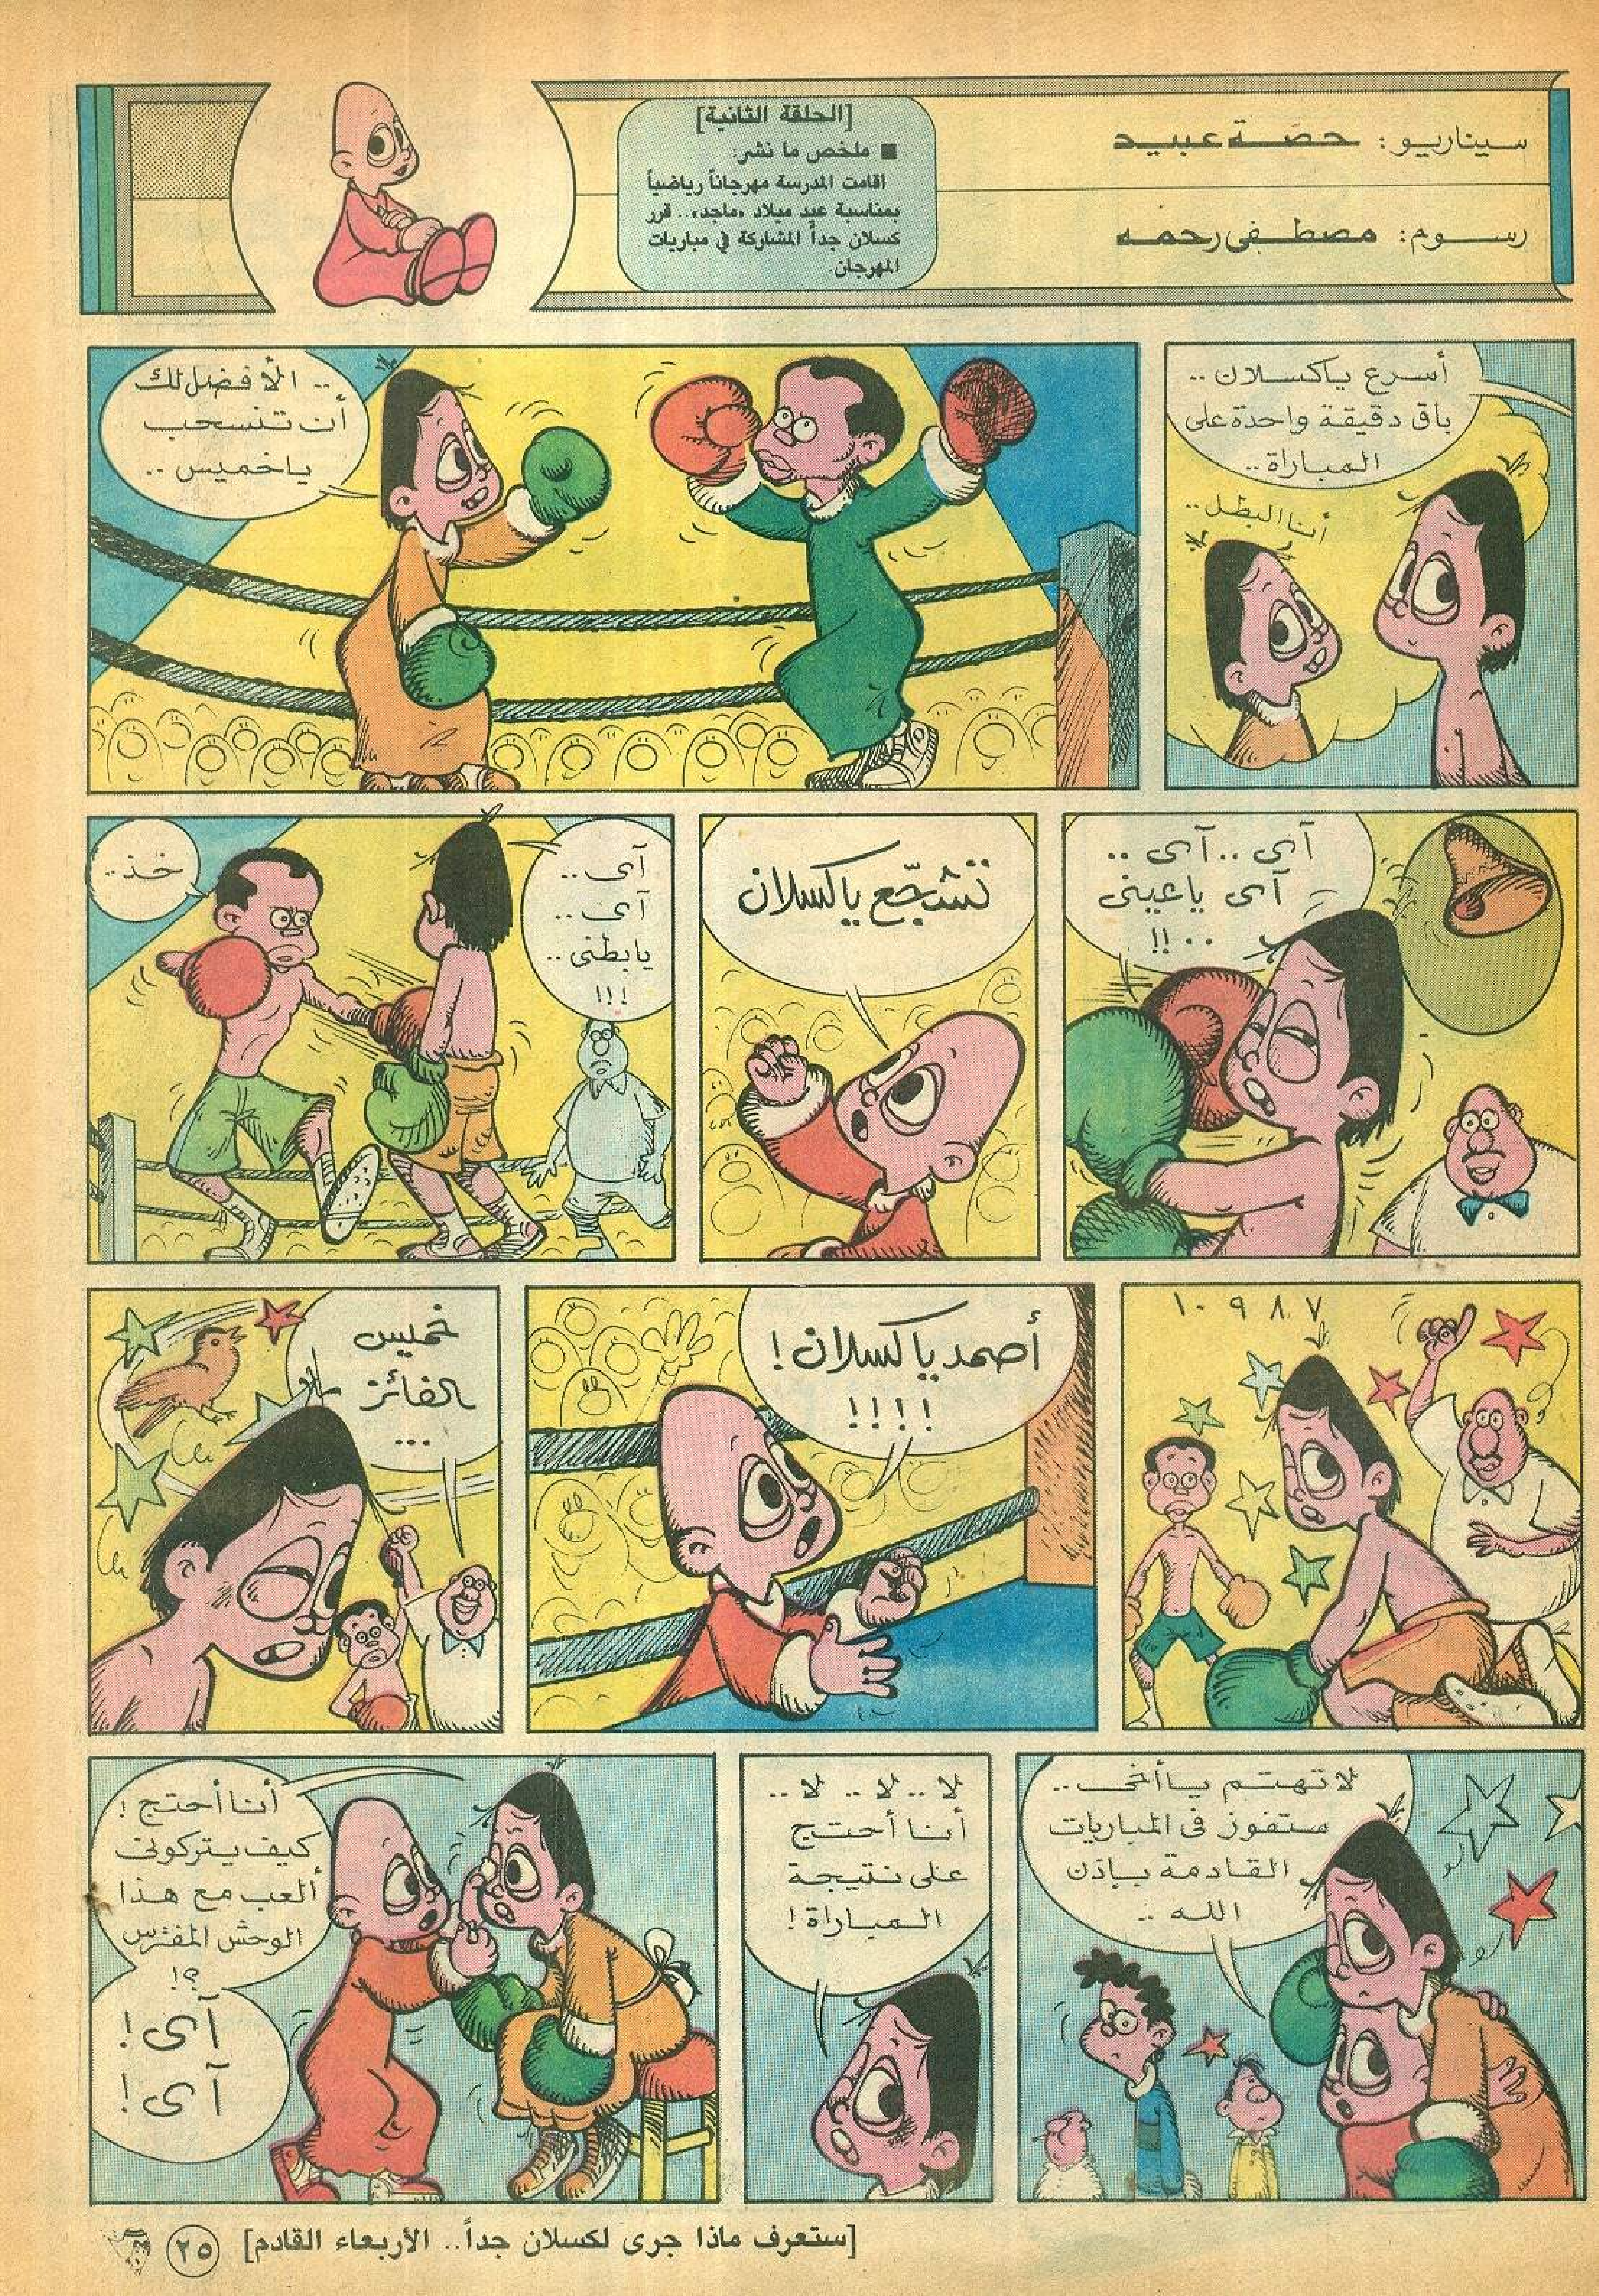 سيناريو: حصّة عبيد
رسوم: مصطفى رحمه
[الحلقة الثانية]
■ ملخص ما نشر:
اقامت المدرسة مهرجاناً رياضياً
بمناسبة عيد ميلاد «ماجد».. قرر
كسلان جداً المشاركة في مباريات
المهرجان.
أسرع ياكسلان ..
باق دقيقة واحدة على
المباراة ..
أنا البطل ..
.. الأفضل لك
أن تنسحب
ياخميس ..
آى .. آى ..
آى ياعينى
.. !!
تشجّع ياكسلان
آى ..
آى ..
يابطنى ..
!!!
خذ ..
٧ ٨ ٩ ١٠
أصمد ياكسلان !
!!!!
خميس
الفائز
...
لا تهتم ياأخى ..
ستفوز فى المباريات
القادمة بإذن
الله ..
لا .. لا .. لا ..
أنا أحتج
على نتيجة
المباراة !
أنا أحتج !
كيف يتركونى
ألعب مع هذا
الوحش المفترس
؟!
آى !
آى !
[ستعرف ماذا جرى لكسلان جداً.. الأربعاء القادم]
٢٥